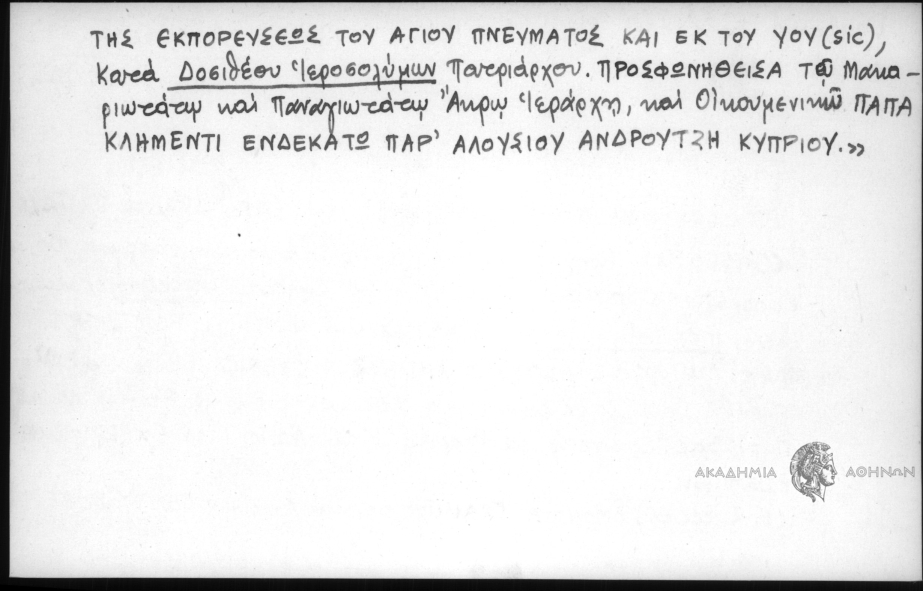 ΤΗΣ ΕΚΠΟΡΕΥΣΕΩΣ ΤΟΥ ΑΓΙΟΥ ΠΝΕΥΜΑΤΟΣ ΚΑΙ ΕΚ ΤΟΥ ΥΟΥ (sic),
Κατά Δοσιθέου Ἱεροσολύμων Πατριάρχου. ΠΡΟΣΦΩΝΗΘΕΙΣΑ Τῷ Μακα-
ριωτάτῳ καί Παναγιωτάτῳ Ἄκρῳ Ἱεράρχῃ, καί Οἰκουμενικῷ ΠΑΠΑ
ΚΛΗΜΕΝΤΙ ΕΝΔΕΚΑΤΩ ΠΑΡ' ΑΛΟΥΣΙΟΥ ΑΝΔΡΟΥΤΖΗ ΚΥΠΡΙΟΥ.»
ΑΚΑΔΗΜΙΑ ΑΘΗΝΩΝ